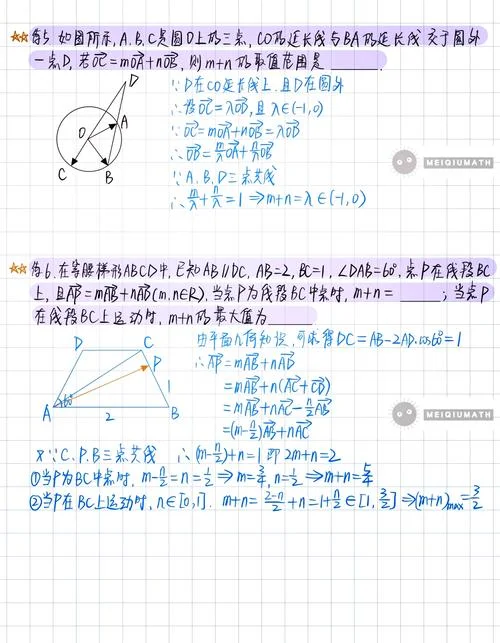 ☆☆例5. 如图所示, A.B.C是圆O上的三点, CO的延长线与BA的延长线交于圆外
一点D, 若OC=mOA+nOB, 则m+n的取值范围是
∵D在CO延长线上.且D在圆外
∴设OC=λOD,且λ∈(-1,0)
∵OC=mOA+nOB=λOD
∴OD=m/λOA+n/λOB
∵A.B.D三点共线
∴m/λ+n/λ=1⇒m+n=λ∈(-1,0)
D
A
O
C
B
MEIQIUMATH
☆☆例6.在等腰梯形ABCD中,已知AB∥DC, AB=2, BC=1, ∠DAB=60°, 点P在线段BC
上, 且AP=mAB+nAD(m.n∈R).当点P为线段BC中点时, m+n=______; 当点P
在线段BC上运动时, m+n的最大值为
由平面几何知识, 可求得DC=AB-2AD.cos60°=1
∴AP=mAB+nAD
=mAB+n(AC+CD)
=mAB+nAC-n/2AB
=(m-n/2)AB+nAC
D
C
P
1
A
60°
2
B
MEIQIUMATH
又∵C.P.B三点共线 ∴(m-n/2)+n=1即2m+n=2
①当P为BC中点时, m-n/2=n=1/2⇒m=3/4, n=1/2⇒m+n=5/4
②当P在BC上运动时, n∈[0,1]. m+n=2-n/2+n=1+n/2∈[1,3/2]⇒(m+n)max=3/2